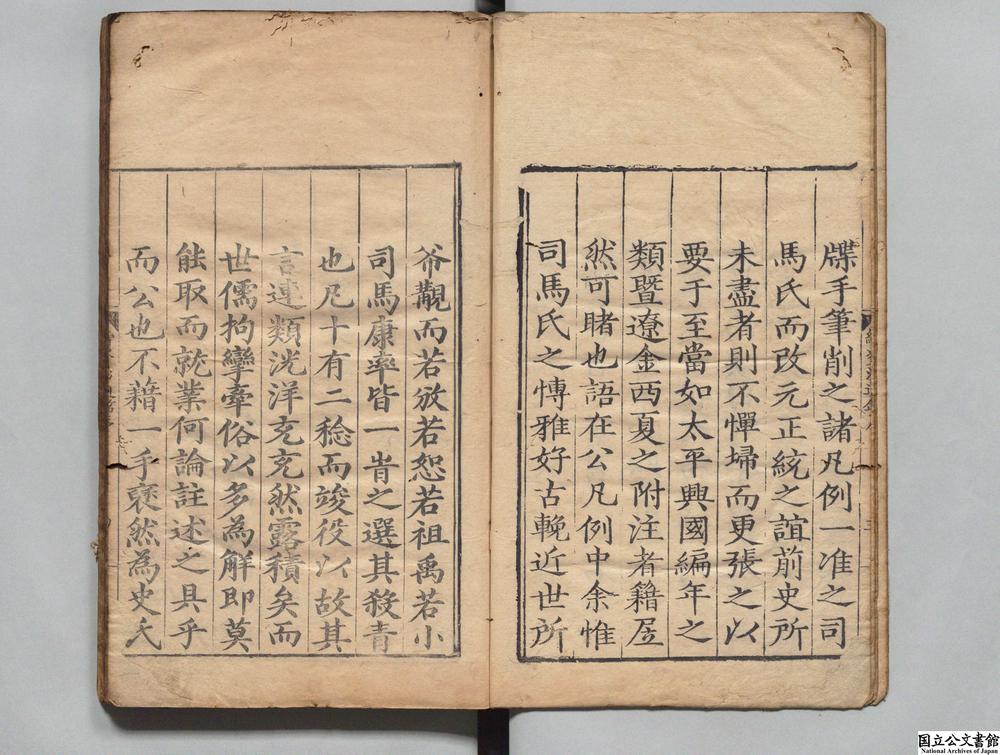 牒手筆削之諸凡例一准之司
馬氏而改元正統之誼前史所
未盡者則不憚埽而更張之以
要于至當如太平興國編年之
類暨遼金西夏之附注者籍
然可睹也語在公凡例中余惟
司馬氏之愽雅好古輓近世所
爷觀而若攽若恕若祖禹若小
司馬康率皆一旹之選其殺青
也凡十有二稔而竣役以故其
言連類洸洋充充然露積矣而
世儒拘攣牽俗以多為解即莫
能取而就業何論註述之具乎
而公也不藉一手裒然為史氏
国立公文書館
National Archives of Japan